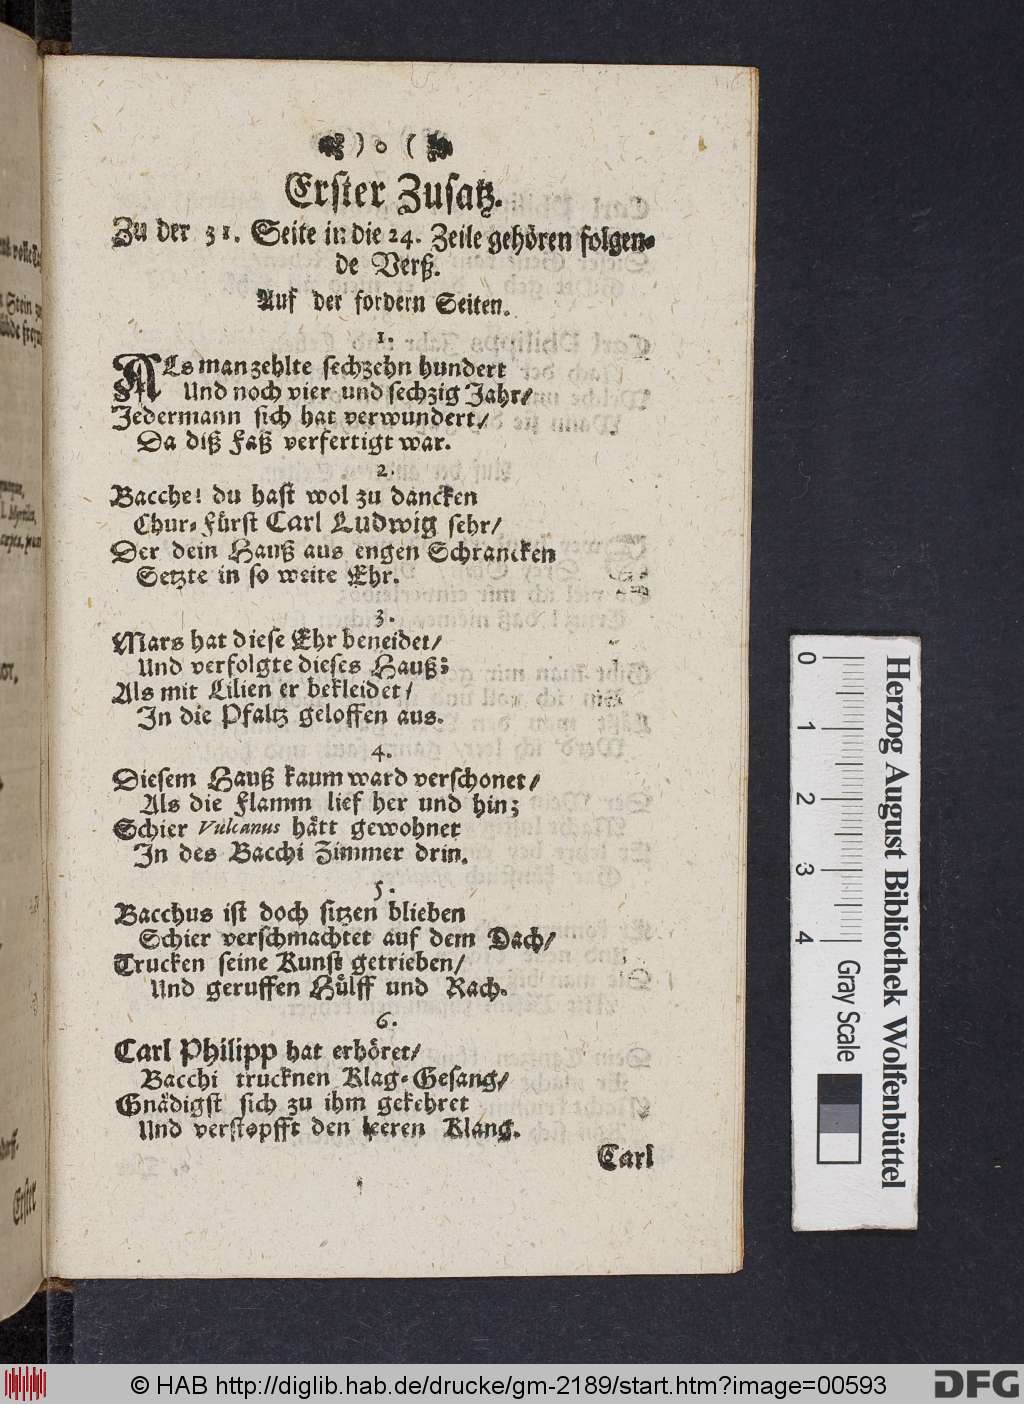 ) o (
Erster Zusatz.
Zu der 31. Seite in die 24. Zeile gehören folgen-
de Verß.
Auf der fordern Seiten.
1.
ALs man zehlte sechzehn hundert
Und noch vier und sechzig Jahr/
Jedermann sich hat verwundert/
Da diß Faß verfertigt war.
2.
Bacche! du hast wol zu dancken
Chur-Fürst Carl Ludwig sehr/
Der dein Hauß aus engen Schrancken
Setzte in so weite Ehr.
3.
Mars hat diese Ehr beneidet/
Und verfolgte dieses Hauß;
Als mit Lilien er bekleidet/
In die Pfaltz geloffen aus.
4.
Diesem Hauß kaum ward verschonet/
Als die Flamm lief her und hin;
Schier Vulcanus hätt gewohnet
In des Bacchi Zimmer drin.
5.
Bacchus ist doch sitzen blieben
Schier verschmachtet auf dem Dach/
Trucken seine Kunst getrieben/
Und geruffen Hülff und Rach.
6.
Carl Philipp hat erhöret/
Bacchi trucknen Klag-Gesang/
Gnädigst sich zu ihm gekehret
Und verstopfft den leeren Klang.
Carl
Erster
0 1 2 3 4
Gray Scale
Herzog August Bibliothek Wolfenbüttel
© HAB http://diglib.hab.de/drucke/gm-2189/start.htm?image=00593
DFG